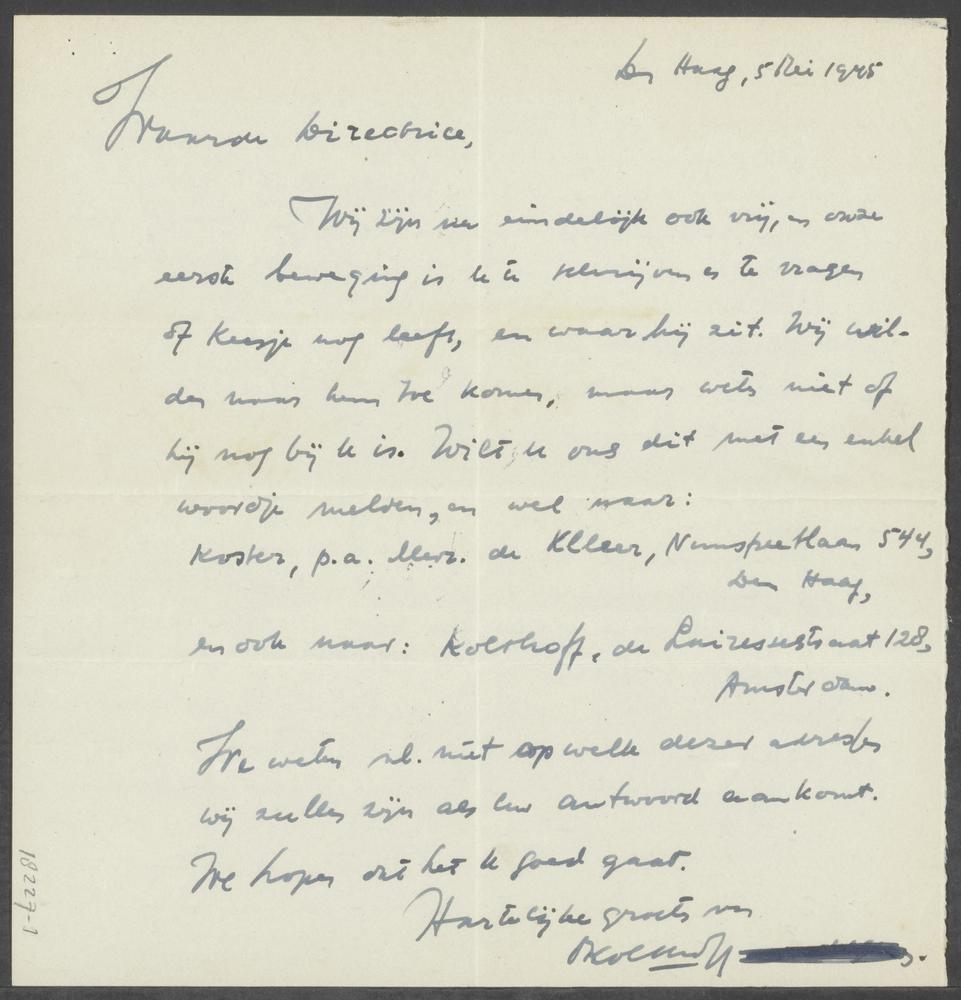 Den Haag, 5 Mei 1945
Waarde Directrice,
Wij zijn nu eindelijk ook vrij, en onze
eerste beweging is U te schrijven en te vragen
of Keesje nog leeft, en waar hij zit. Wij wil-
den naar hem toe komen, maar weten niet of
hij nog bij U is. Wilt U ons dit met een enkel
woordje melden, en wel naar:
Koster, p.a. Mevr. de Kleer, Nunspeetlaan 544,
Den Haag,
en ook naar: Kolthoff, de Lairessestraat 128,
Amsterdam.
We weten nl. niet op welke dezer adressen
wij zullen zijn als Uw antwoord aankomt.
We hopen dat het U goed gaat.
Hartelijke groeten van
Kolthoff
18227-1